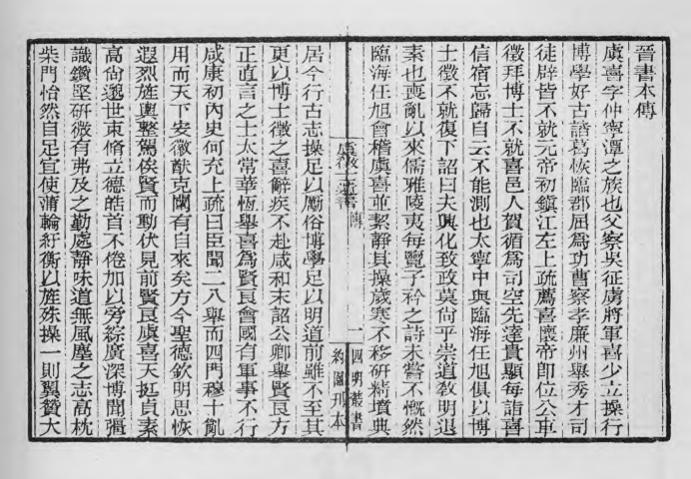 晉書本傳
虞喜字仲寧潭之族也父察吳征虜將軍喜少立操行
博學好古諸葛恢臨郡屈爲功曹察孝廉州舉秀才司
徒辟皆不就元帝初鎭江左上疏薦喜懷帝卽位公車
徵拜博士不就喜邑人賀循爲司空先達貴顯每詣喜
信宿忘歸自云不能測也太寧中與臨海任旭俱以博
士徵不就復下詔曰夫興化致政莫尙乎崇道敎明退
素也喪亂以來儒雅陵夷每覽子衿之詩未嘗不慨然
臨海任旭會稽虞喜並絜靜其操歲寒不移硏精墳典
傳
一
四明叢書
約園刊本
居今行古志操足以勵俗博學足以明道前雖不至其
更以博士徵之喜辭疾不赴咸和末詔公卿舉賢良方
正直言之士太常華恆舉喜爲賢良會國有軍事不行
咸康初內史何充上疏曰臣聞二八舉而四門穆十亂
用而天下安徽猷克闡有自來矣方今聖德欽明思恢
遐烈旌輿整駕俟賢而動伏見前賢良虞喜天挺貞素
高尙邈世束脩立德皓首不倦加以旁綜廣深博聞彊
識鑽堅硏微有弗及之勤處靜味道無風塵之志高枕
柴門怡然自足宜使蒲輪紆衡以旌殊操一則翼贊大